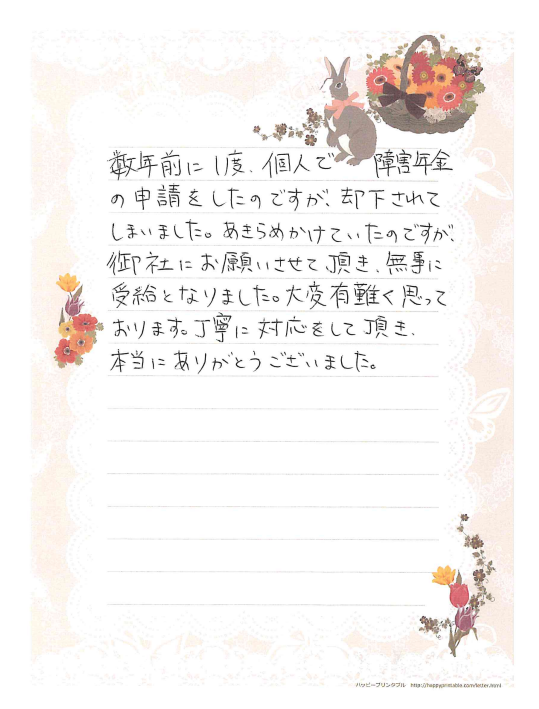 数年前に1度、個人で 障害年金
の申請をしたのですが、却下されて
しまいました。あきらめかけていたのですが、
御社にお願いさせて頂き、無事に
受給となりました。大変有難く思って
おります。丁寧に対応をして頂き、
本当にありがとうございました。
ハッピープリンタブル http://happyprintable.com/letter.html